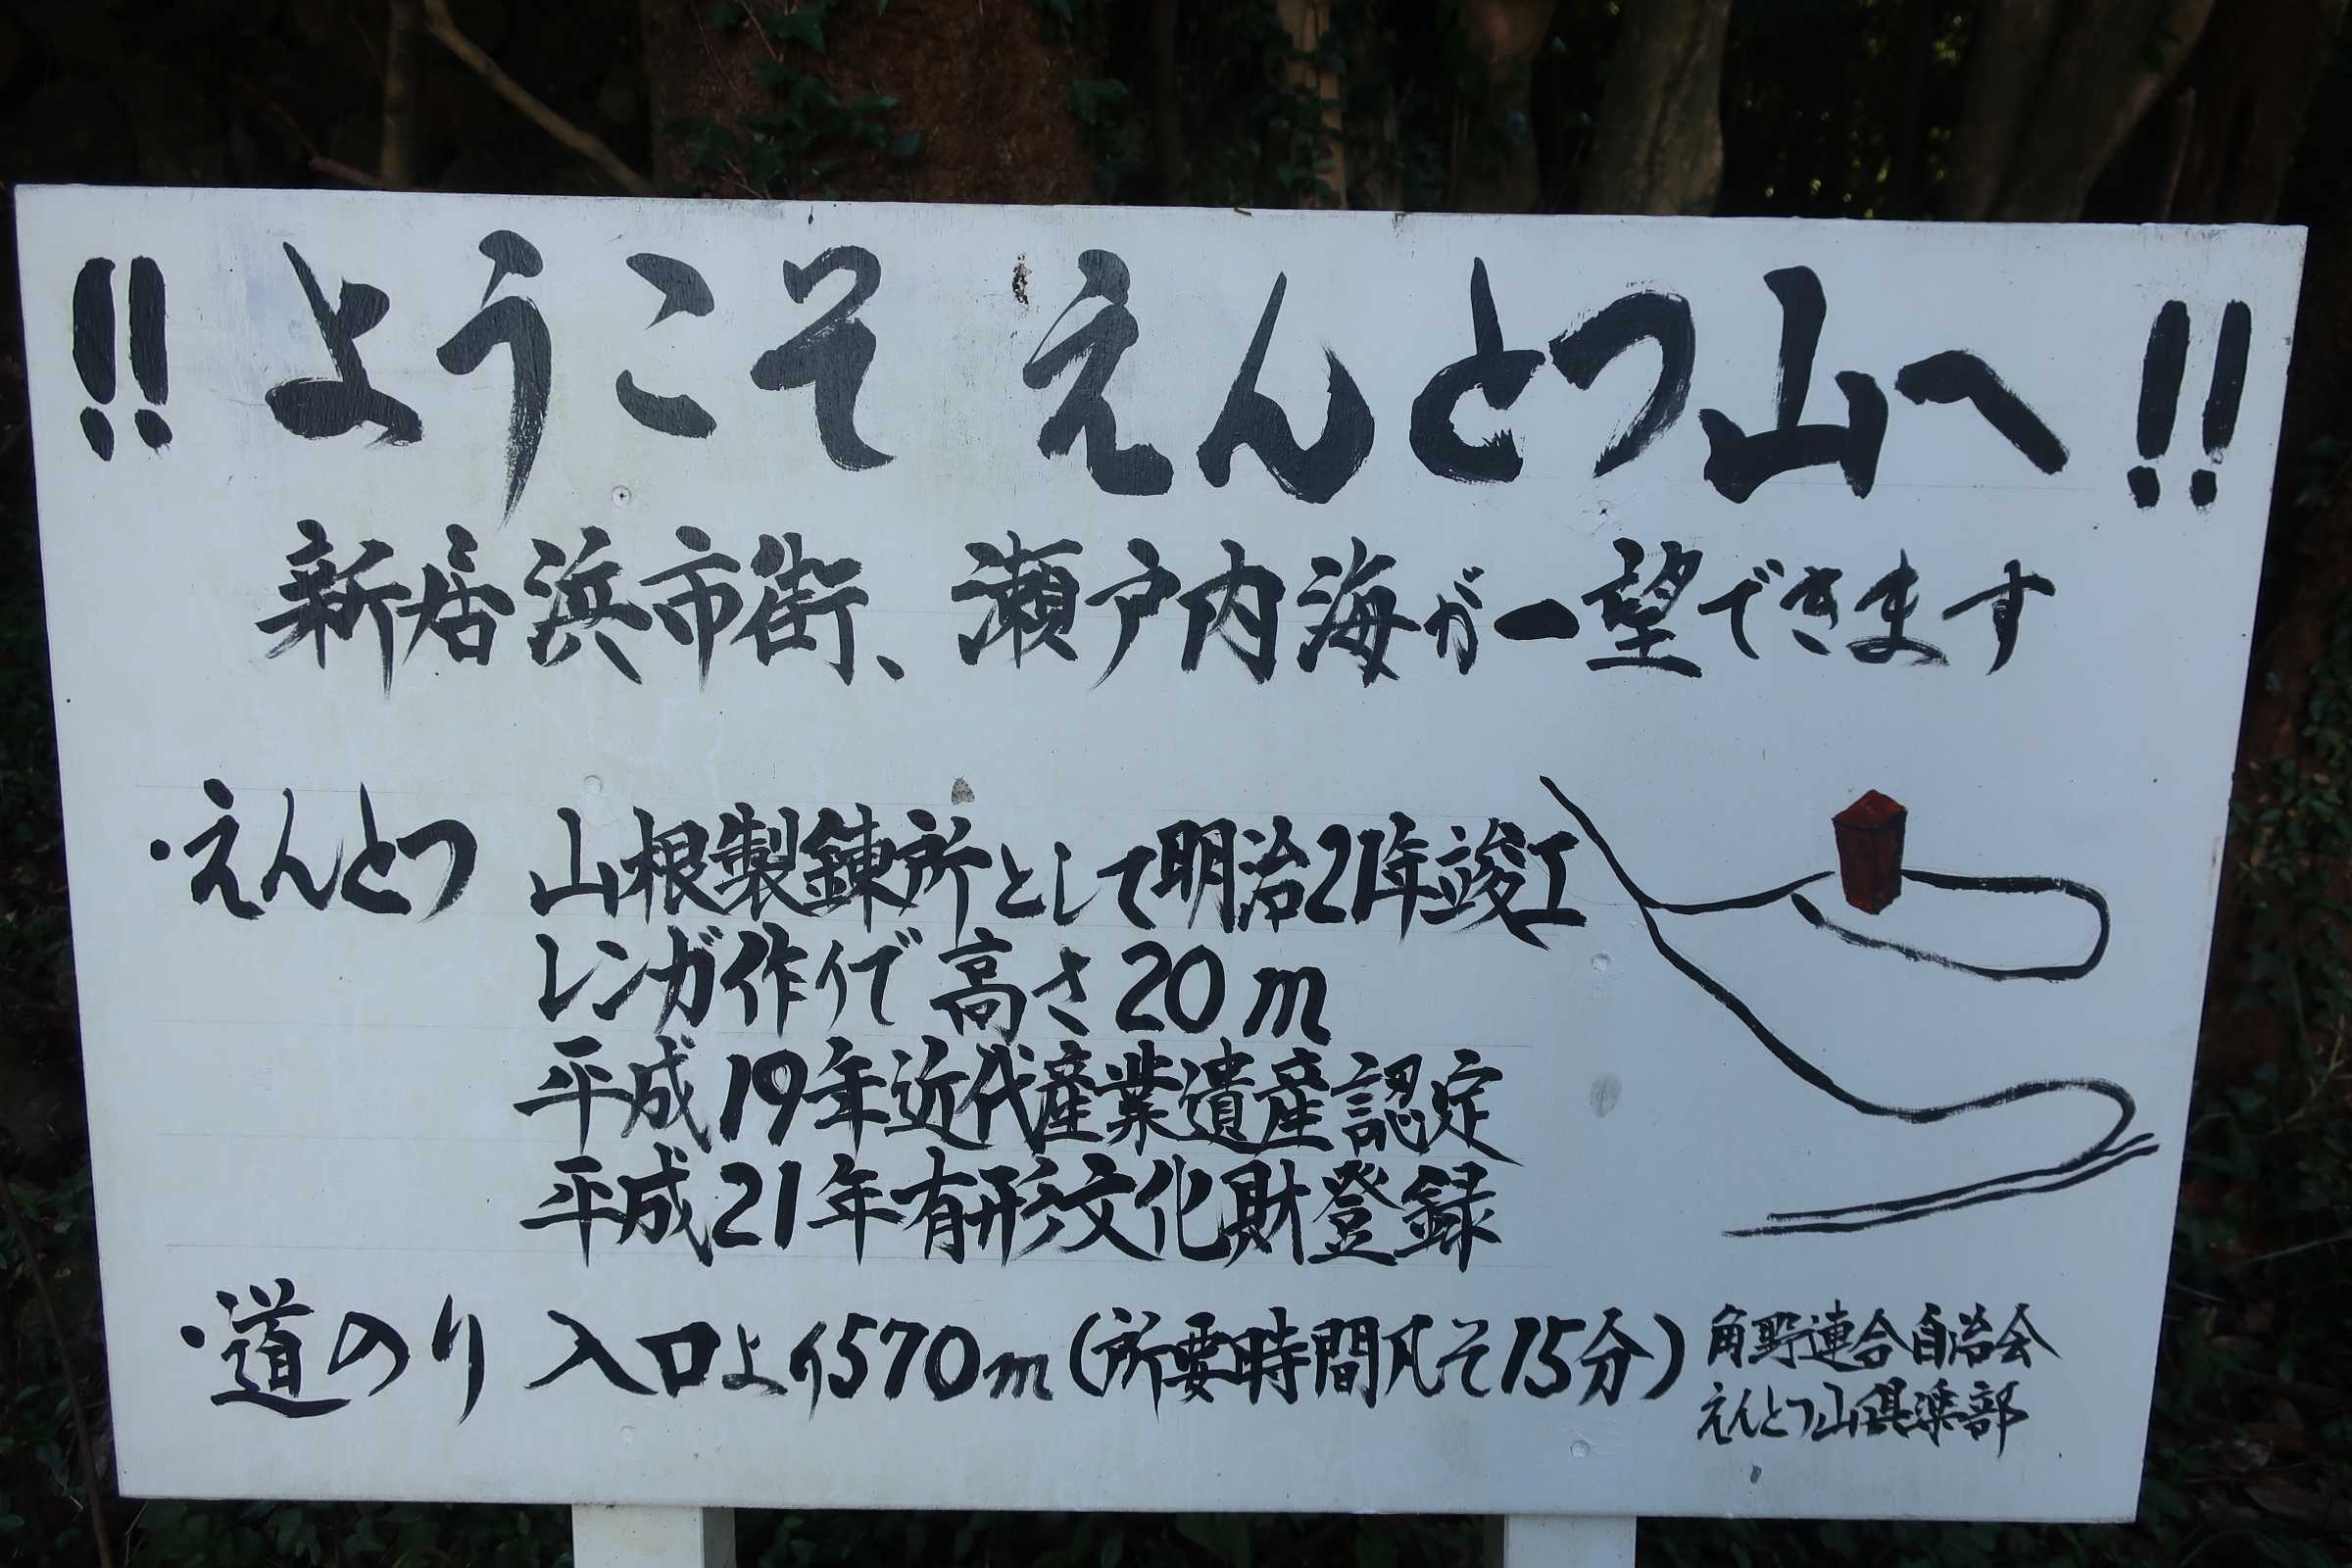 !! ようこそ えんとつ山へ !!
新居浜市街、瀬戸内海が一望できます
・えんとつ 山根製錬所として明治21年竣工
レンガ作りで高さ20m
平成19年近代産業遺産認定
平成21年有形文化財登録
・道のり 入口より570m(所要時間凡そ15分)
角野連合自治会
えんとつ山倶楽部